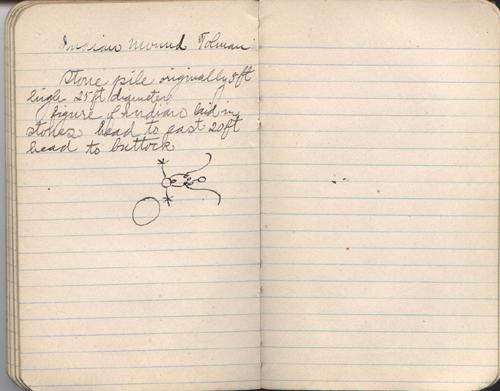 Indian Mound Tolman
Stone pile originally 5 ft
high 25 ft diameter
figure of Indian laid in
stones head to east 20 ft
head to buttock